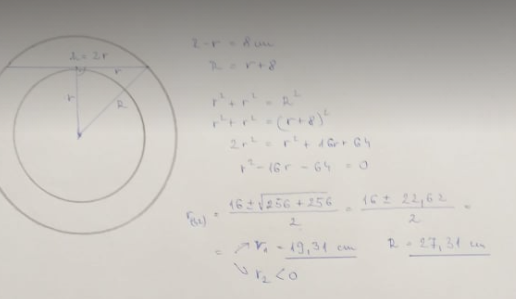 h = 2r
r
r
R
R - r = 8 cm
R = r + 8
r² + r² = R²
r² + r² = (r + 8)²
2r² = r² + 16r + 64
r² - 16r - 64 = 0
r₍₁,₂₎ = (16 ± √(256 + 256))/2 = (16 ± 22,62)/2 =
= r₁ = 19,31 cm R = 27,31 cm
r₂ < 0